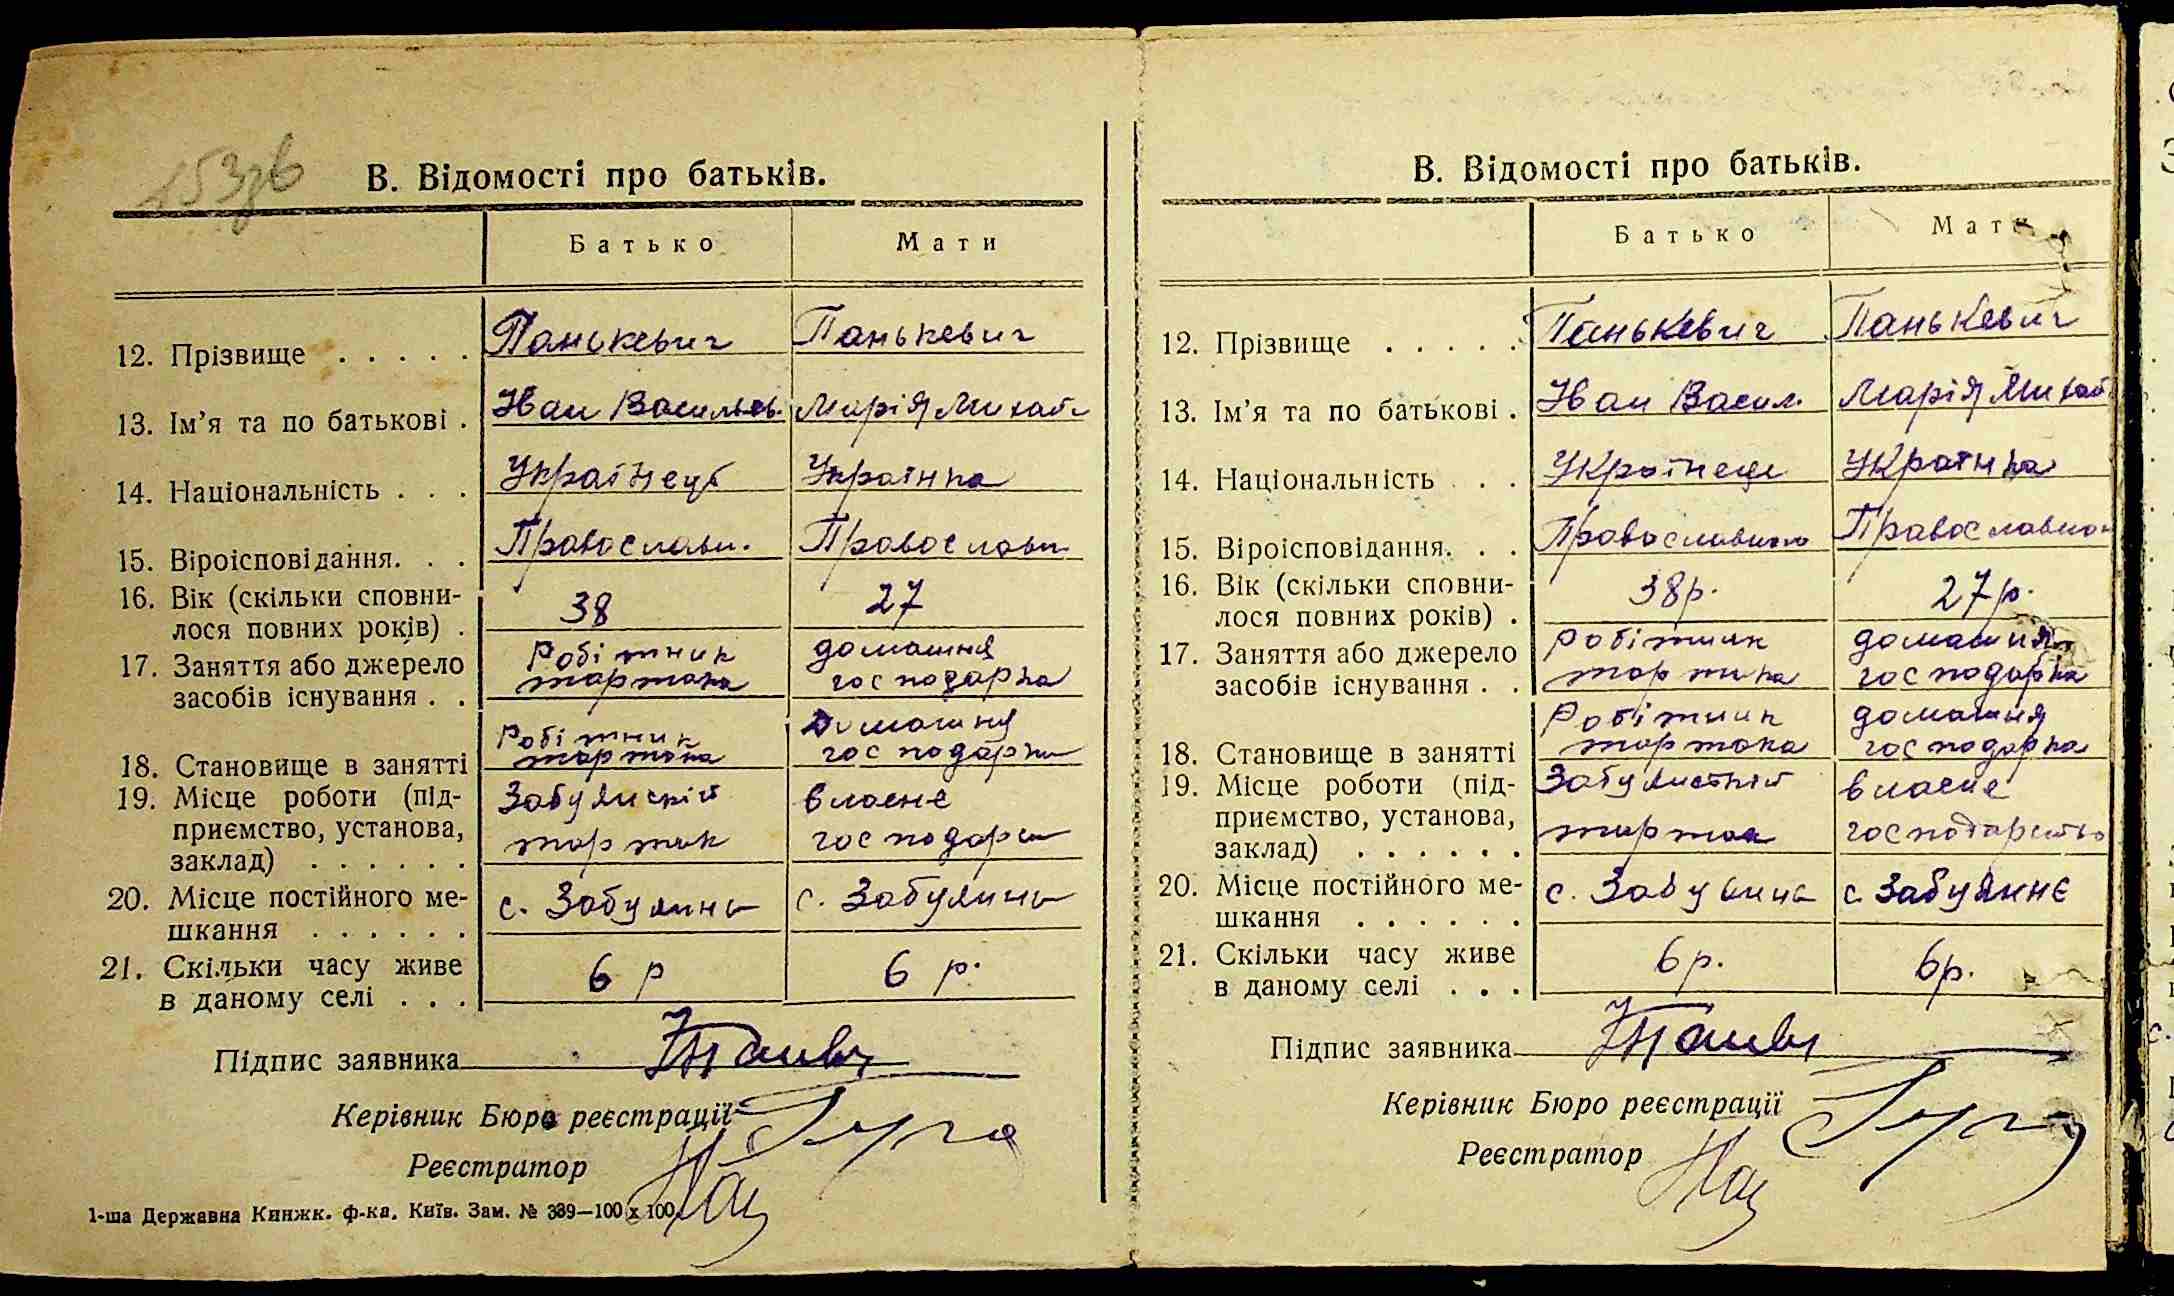 153зв
В. Відомості про батьків.
Батько Мати
12. Прізвище . . . . . Панькевич Панькевич
13. Ім’я та по батькові . Іван Васильев. Марія Михайл
14. Національність . . . Українець Українка
15. Віроісповідання. . . Православн. Православн
16. Вік (скільки сповни-
лося повних років) . 38 27
17. Заняття або джерело Робітник домашня
засобів існування . . тартака господарка
Робітник Домашня
18. Становище в занятті тартака господарка
19. Місце роботи (під- Забуянскій власне
приємство, установа,
заклад) . . . . . . тартак господарст
20. Місце постійного ме-
шкання . . . . . . с. Забуяннь с. Забуяннь
21. Скільки часу живе
в даному селі . . . 6 р 6 р.
Підпис заявника
Керівник Бюро реєстрації
Реєстратор
1-ша Державна Книжк. ф-ка. Київ. Зам. № 389—100 х 100.
В. Відомості про батьків.
Батько Мати
12. Прізвище . . . . . Панькевич Панькевич
13. Ім’я та по батькові . Іван Васил. Марія Михай
14. Національність . . Українець Українка
15. Віроісповідання. . . Православного Православно
16. Вік (скільки сповни-
лося повних років) . 38р. 27р.
17. Заняття або джерело робітник домашня
засобів існування . . тартака господарка
Робітник домашня
18. Становище в занятті тартака господарка
19. Місце роботи (під- Забуянскій власне
приємство, установа,
заклад) . . . . . . тартак господарство
20. Місце постійного ме-
шкання . . . . . . с. Забуяннь с Забуяннє
21. Скільки часу живе
в даному селі . . . 6р. 6р.
Підпис заявника
Керівник Бюро реєстрації
Реєстратор